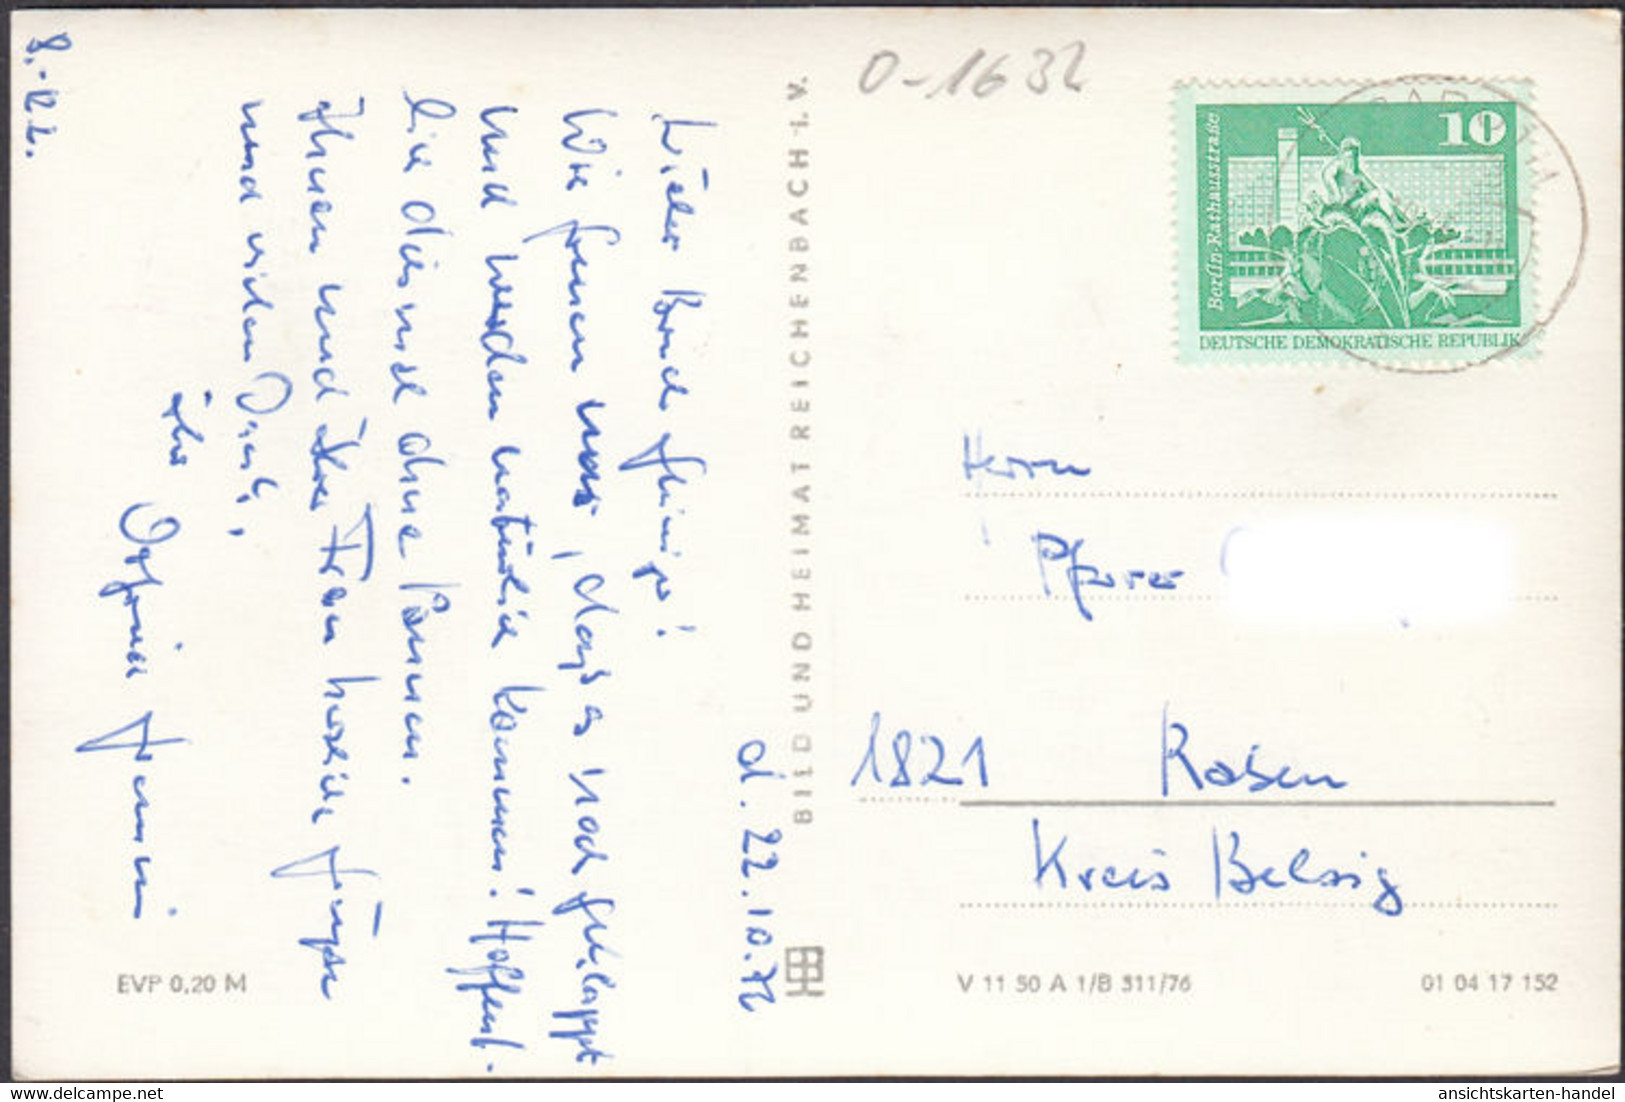 d. 22.10.72
Lieber Bruder
Wir freuen uns, dass es noch geklappt
und werden natürlich kommen! Hoffent-
lich diesmal ohne Pannen.
Ihnen und Ihrer Frau herzliche Grüße
und vielen Dank,
Ihr
8.-
O-1632
BILD UND HEIMAT REICHENBACH i. V.
EVP 0,20 M
10
Berlin-Rathausstraße
DEUTSCHE DEMOKRATISCHE REPUBLIK
Herrn
Pfarrer
1821 Raben
Kreis Belzig
V 11 50 A 1/B 311/76
01 04 17 152
ansichtskarten-handel